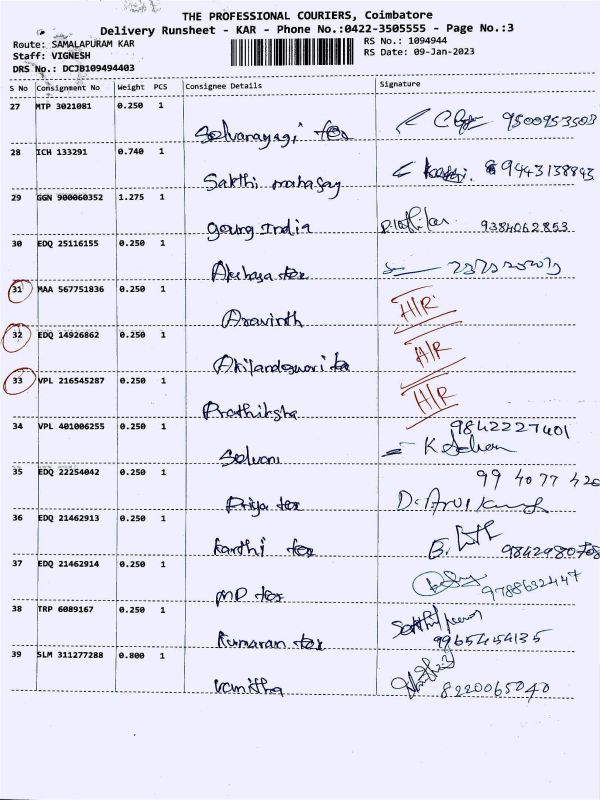 THE PROFESSIONAL COURIERS, Coimbatore
Delivery Runsheet - KAR - Phone No.:0422-3505555 - Page No.:3
Route: SAMALAPURAM KAR
RS No.: 1094944
Staff: VIGNESH
RS Date: 09-Jan-2023
DRS No.: DCJB109494403
S No Consignment No Weight PCS Consignee Details Signature
27 MTP 3021081 0.250 1
Selvanayagi tex 9500953503
28 ICH 133291 0.740 1
Sakthi 9443138893
29 GGN 900060352 1.275 1
goung India 9384062853
30 EDQ 25116155 0.250 1
tex
31 MAA 567751836 0.250 1 H/R
Aravinth
32 EDQ 14926862 0.250 1 H/R
Akilandeswari tex
33 VPL 216545287 0.250 1 H/R
Prathiksha
34 VPL 401006255 0.250 1 9842227401
Selvani
35 EDQ 22254042 0.250 1 99 4077 420
Priya tex
36 EDQ 21462913 0.250 1
Karthi tex 9842980708
37 EDQ 21462914 0.250 1
MD tex 9788632447
38 TRP 6089167 0.250 1
Kumaran tex 9965454135
39 SLM 311277288 0.800 1
Vanitha 8220065040